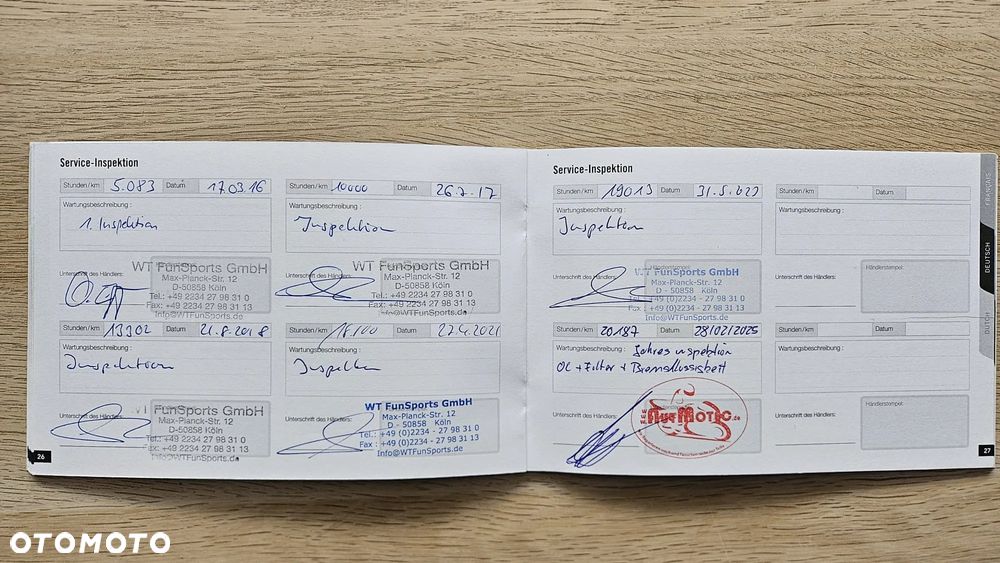 Service-Inspektion
Stunden/km 5.083 Datum 17.03.16
Wartungsbeschreibung :
1. Inspektion
Unterschrift des Händlers:
WT FunSports GmbH
Max-Planck-Str. 12
D-50858 Köln
Tel.: +49 2234 27 98 31 0
Fax: +49 2234 27 98 31 13
Info@WTFunSports.de
Stunden/km 10000 Datum 26.7.17
Wartungsbeschreibung :
Inspektion
Unterschrift des Händlers:
WT FunSports GmbH
Max-Planck-Str. 12
D-50858 Köln
Tel.: +49 2234 27 98 31 0
Fax: +49 2234 27 98 31 13
Info@WTFunSports.de
Stunden/km 13302 Datum 21.8.2018
Wartungsbeschreibung :
Inspektion
Unterschrift des Händlers:
FunSports GmbH
Max-Planck-Str. 12
D-50858 Köln
+49 2234 27 98 31 0
+49 2234 27 98 31 13
Info@WTFunSports.de
Stunden/km 16100 Datum 27.4.2021
Wartungsbeschreibung :
Unterschrift des Händlers:
WT FunSports GmbH
Max-Planck-Str. 12
D - 50858 Köln
Tel.: +49 (0)2234 - 27 98 31 0
Fax : +49 (0)2234 - 27 98 31 13
Info@WTFunSports.de
26
Service-Inspektion
Stunden/km 19013 Datum 31.5.
Wartungsbeschreibung :
Inspektion
Unterschrift des Händlers:
WT FunSports GmbH
Max-Planck-Str. 12
D - 50858 Köln
+49 (0)2234 - 27 98 31 0
+49 (0)2234 - 27 98 31 13
Info@WTFunSports.de
Stunden/km Datum
Wartungsbeschreibung :
Unterschrift des Händlers:
Händlerstempel:
Stunden/km 20.187 Datum 28/02/2025
Wartungsbeschreibung : Jahresinspektion
Öl + Filter +
Unterschrift des Händlers:
Stunden/km Datum
Wartungsbeschreibung :
Unterschrift des Händlers:
Händlerstempel:
27
FRANÇAIS
DEUTSCH
DUTCH
OTOMOTO